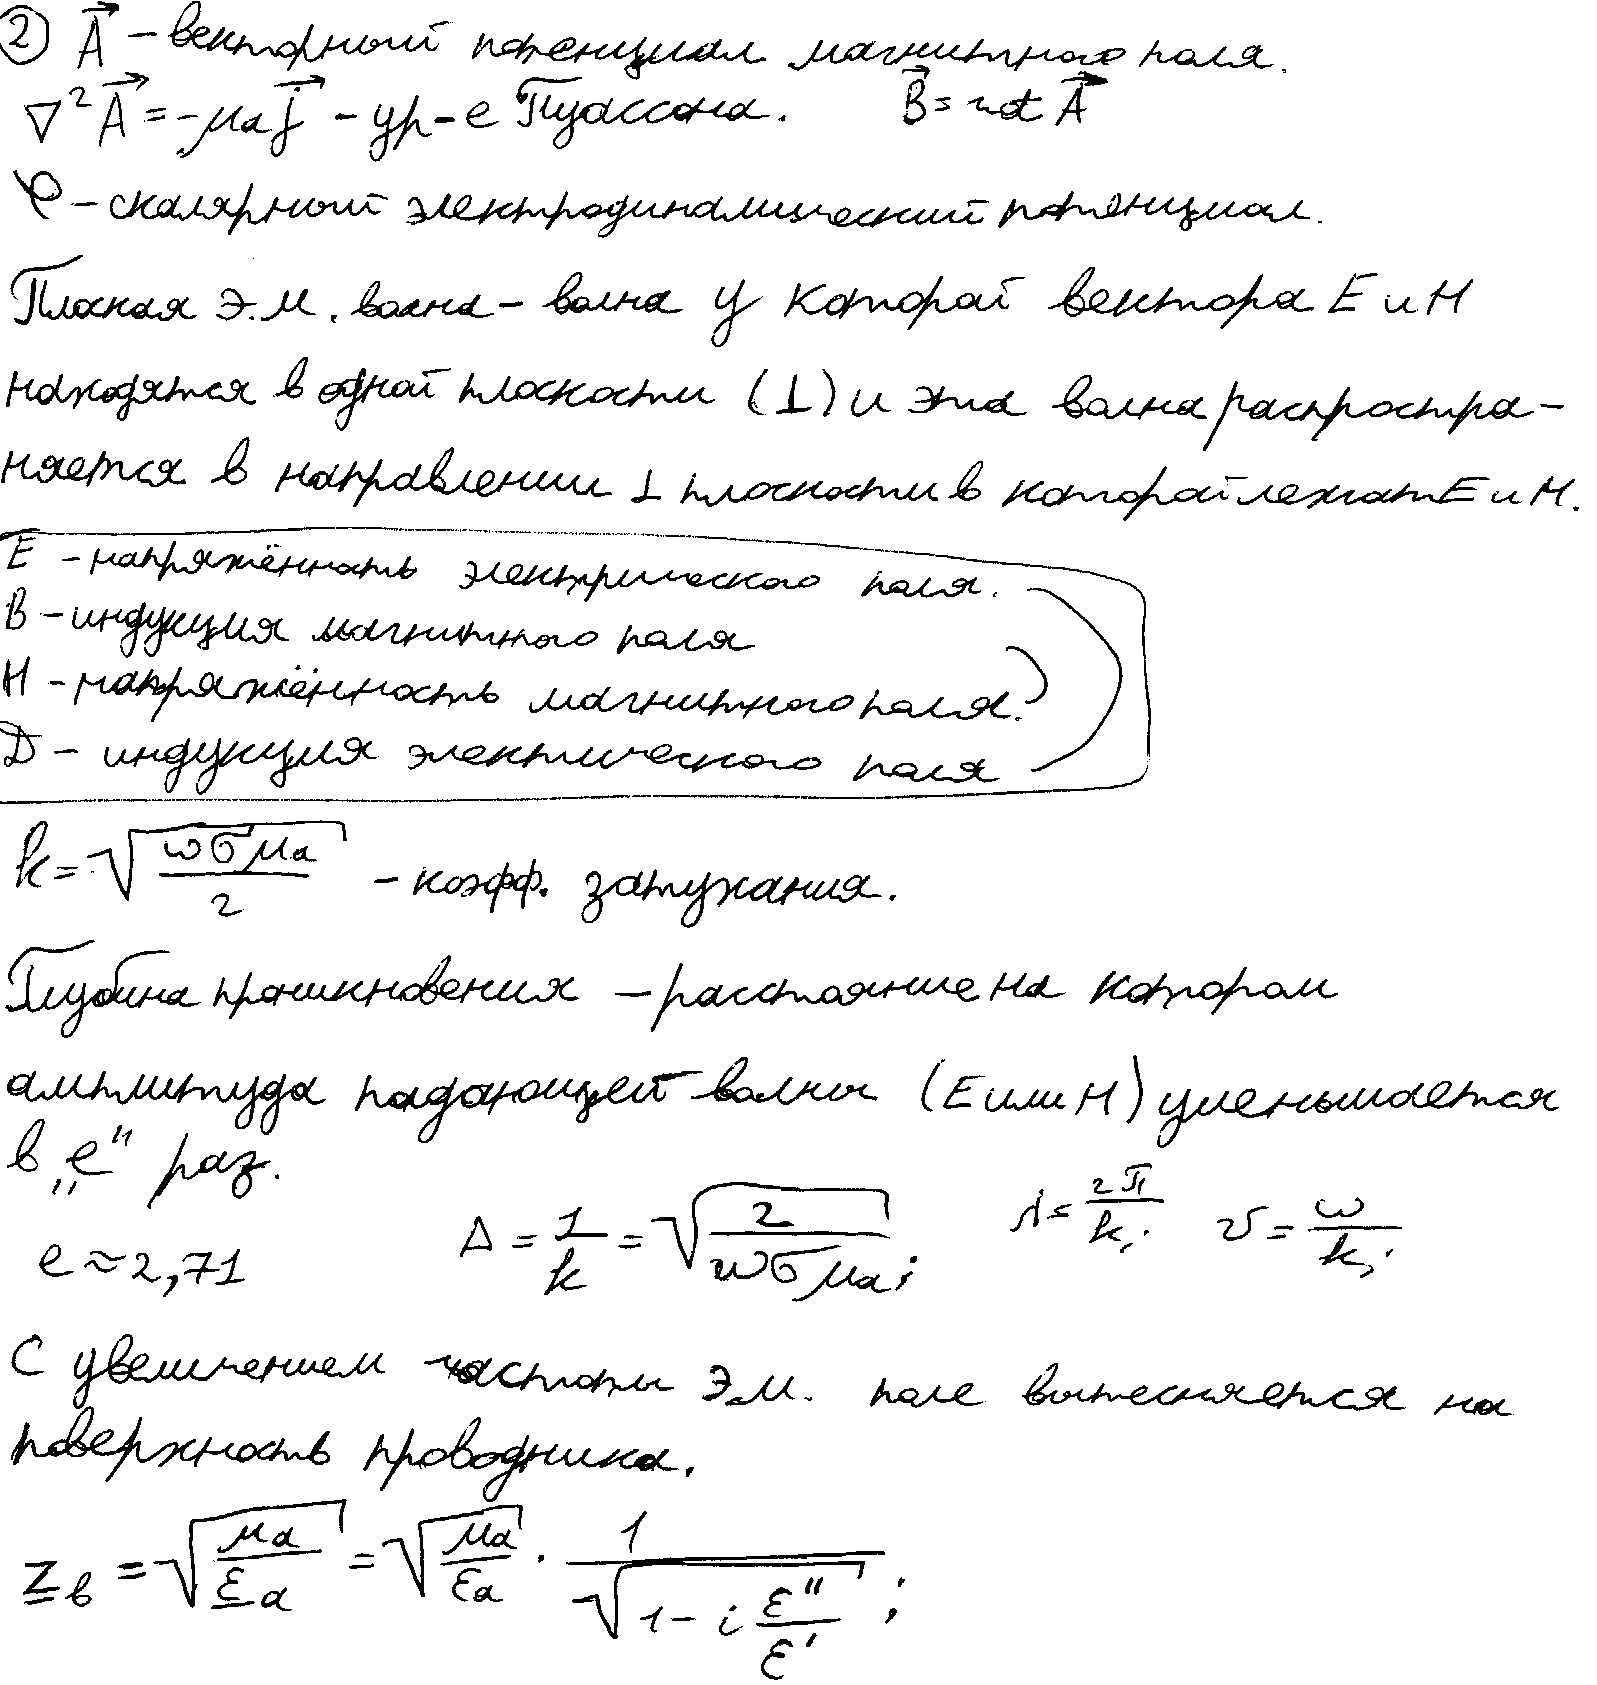 2) A⃗ – векторный потенциал магнитного поля.
∇²A⃗ = -μₐj⃗ - ур-е Пуассона. B⃗ = rot A⃗
φ – скалярный электродинамический потенциал.
Плоская Э.М. волна – волна у которой вектора E и H
находятся в одной плоскости (⊥) и эта волна распростра-
няется в направлении ⊥ плоскости в которой лежат E и H.
E – напряжённость электрического поля.
B – индукция магнитного поля
H – напряжённость магнитного поля.
D – индукция электического поля
k = √(ωσμₐ/2) – коэфф. затухания.
Глубина проникновения – расстояние на котором
амплитуда падающей волны (E или H) уменьшается
в „e" раз.
e ≈ 2,71 Δ = 1/k = √(2/(ωσμₐ)); λ = 2π/k; v = ω/k;
С увеличением частоты Э.М. поле вытесняется на
поверхность проводника.
Z̲в = √(μₐ/ε̲ₐ) = √(μₐ/εₐ) · 1/√(1 - i ε''/ε');